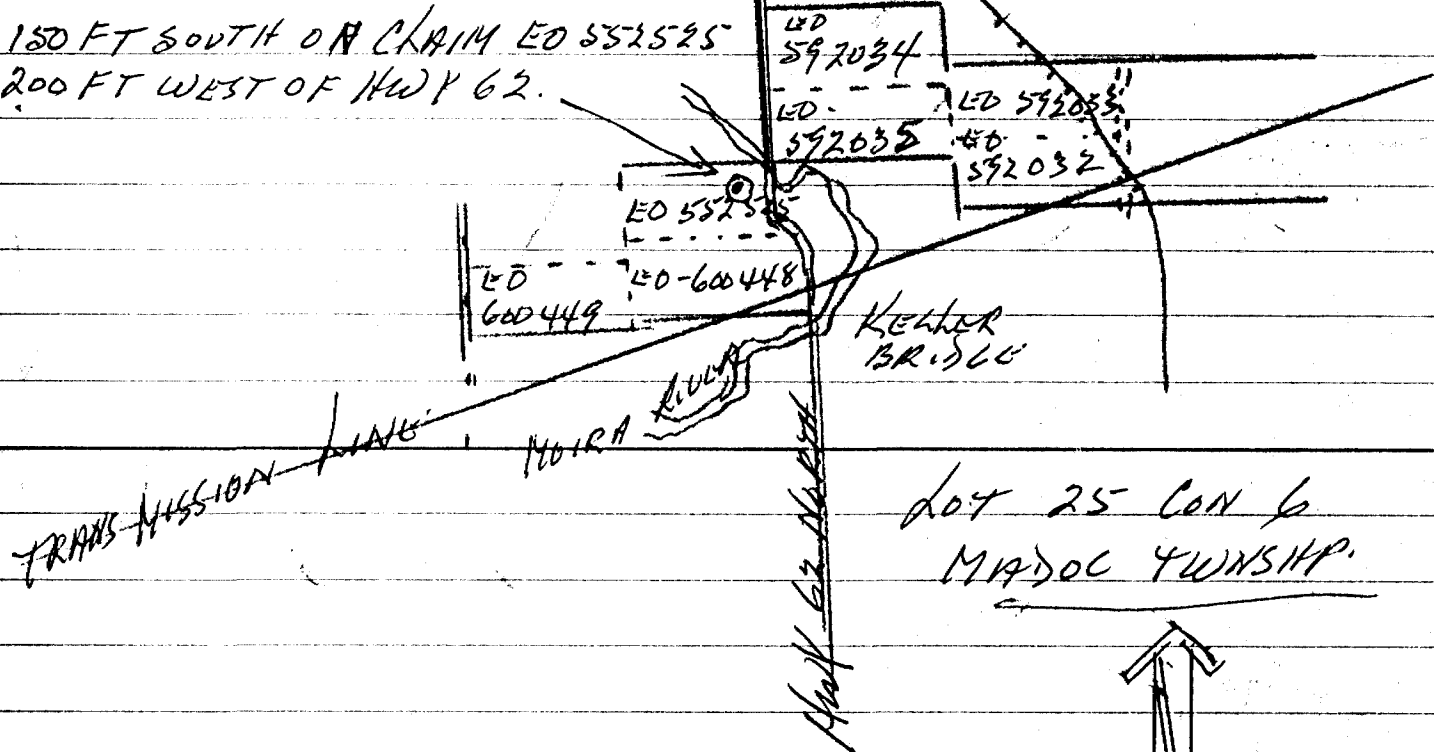 150 FT SOUTH ON CLAIM EO 552525
200 FT WEST OF HWY 62.
EO
592034
EO
592035
EO 592033
EO
592032
EO 552525
EO-600448
EO
600449
KELLER
BRIDGE
MOIRA RIVER
TRANSMISSION LINE
HWY 62 NORTH
LOT 25 CON 6
MADOC TWNSHP.